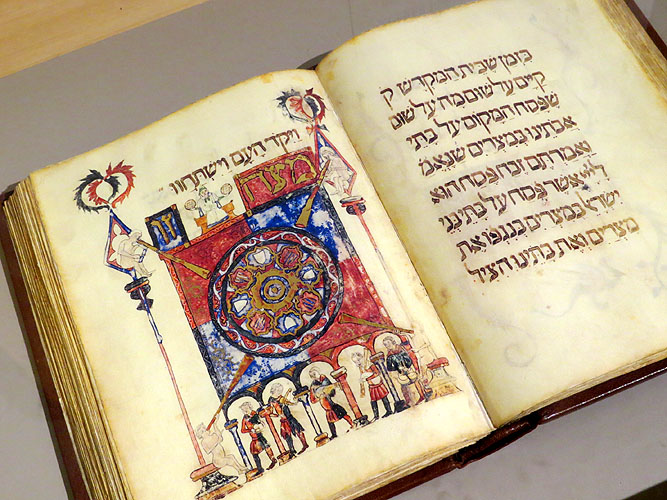 בזמן שבית המקדש ק
קיים על שום מה על שום
שפסח המקום על בתי
אבותינו במצרים שנאמ'
ואמרתם זבח פסח הוא
לייי אשר פסח על בתי בני
ישראל במצרים בנגפו את
מצרים ואת בתינו הציל
ויקד העם וישתחוו
מצה זו